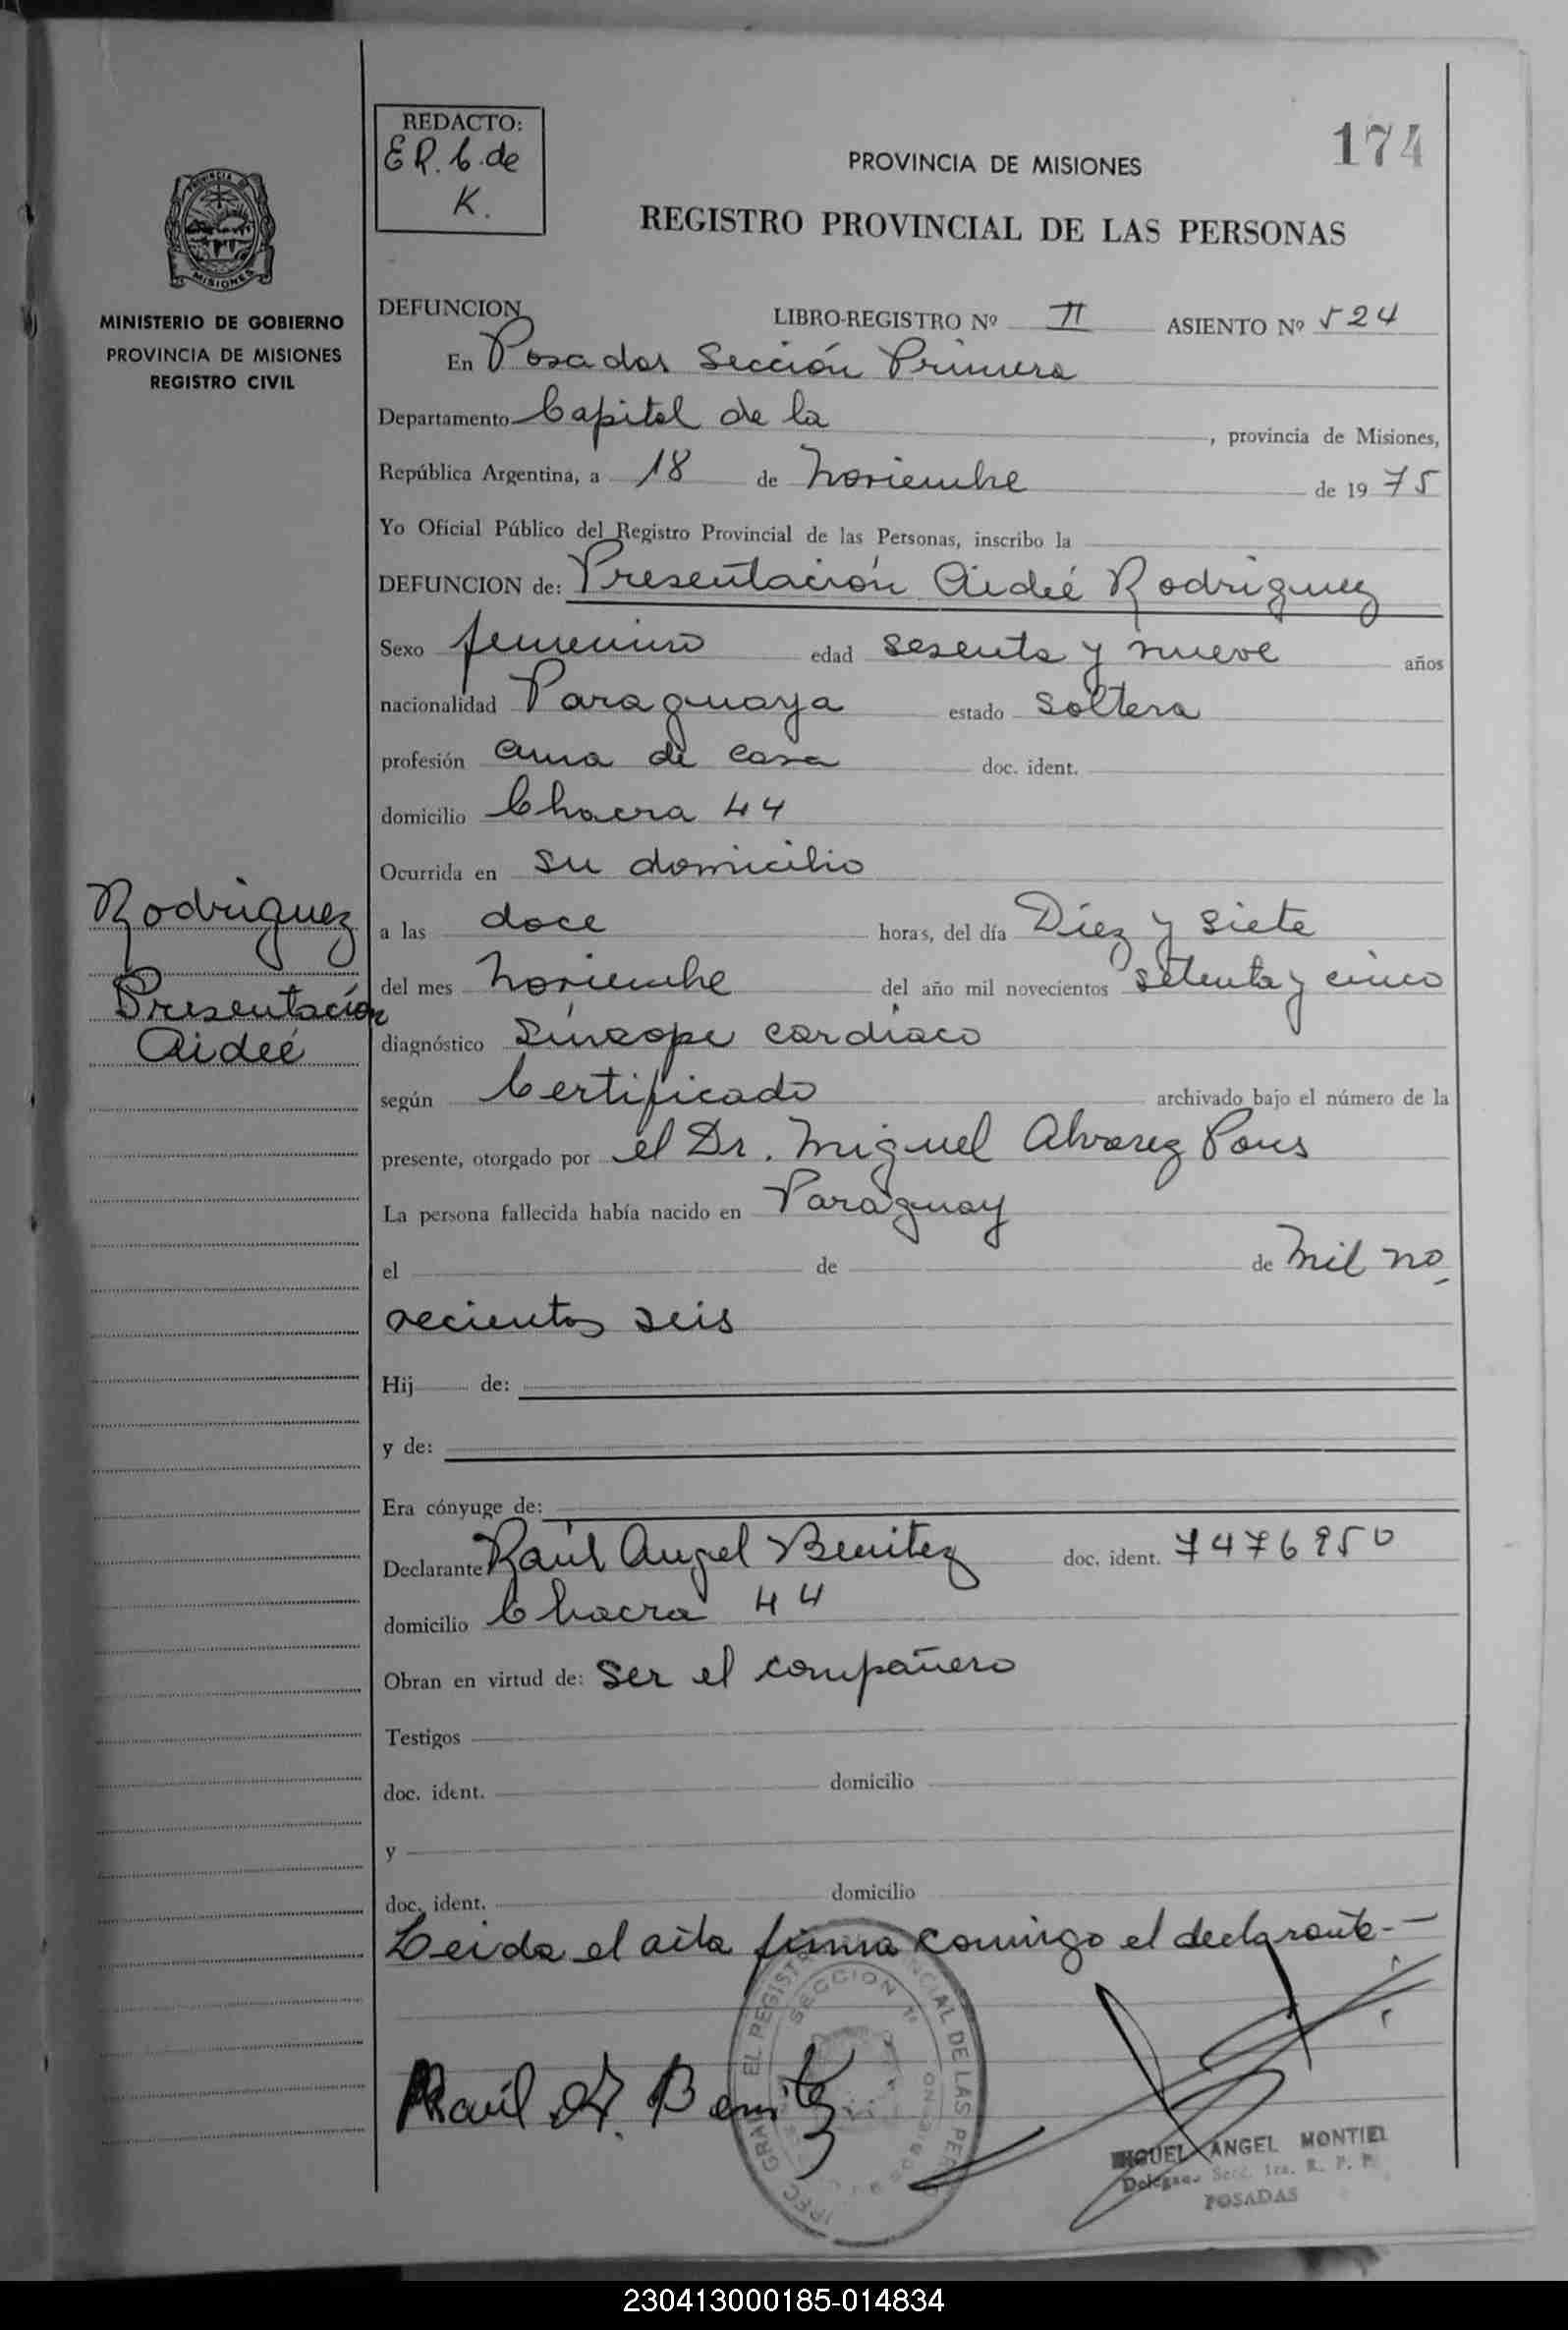 REDACTO:
E R. C. de
K.
174
PROVINCIA DE MISIONES
REGISTRO PROVINCIAL DE LAS PERSONAS
MISIONES
MINISTERIO DE GOBIERNO
PROVINCIA DE MISIONES
REGISTRO CIVIL
DEFUNCION LIBRO-REGISTRO Nº II ASIENTO Nº 524
En Posadas Sección Primera
Departamento Capital de la , provincia de Misiones,
República Argentina, a 18 de Noviembre de 19 75
Yo Oficial Público del Registro Provincial de las Personas, inscribo la
DEFUNCION de: Presentación Aideé Rodriguez
Sexo femenino edad sesenta y nueve años
nacionalidad Paraguaya estado soltera
profesión ama de casa doc. ident.
domicilio Chacra 44
Ocurrida en su domicilio
a las doce horas, del día Diez y siete
del mes Noviembre del año mil novecientos setenta y cinco
diagnóstico Síncope cardíaco
según Certificado archivado bajo el número de la
presente, otorgado por el Dr. Miguel Alvarez Pons
La persona fallecida había nacido en Paraguay
el de de Mil no
vecientos seis
Hij de:
y de:
Era cónyuge de:
Declarante Raúl Angel Benitez doc. ident. 7476950
domicilio Chacra 44
Obran en virtud de: ser el compañero
Testigos
doc. ident. domicilio
y
doc. ident. domicilio
Leida el acta firma conmigo el declarante.-
Rodriguez
Presentación
Aideé
Raúl A. Benitez
SECCION 1ª
MIGUEL ANGEL MONTIEL
Delegado Secc. 1ra. R. P. P.
POSADAS
230413000185-014834